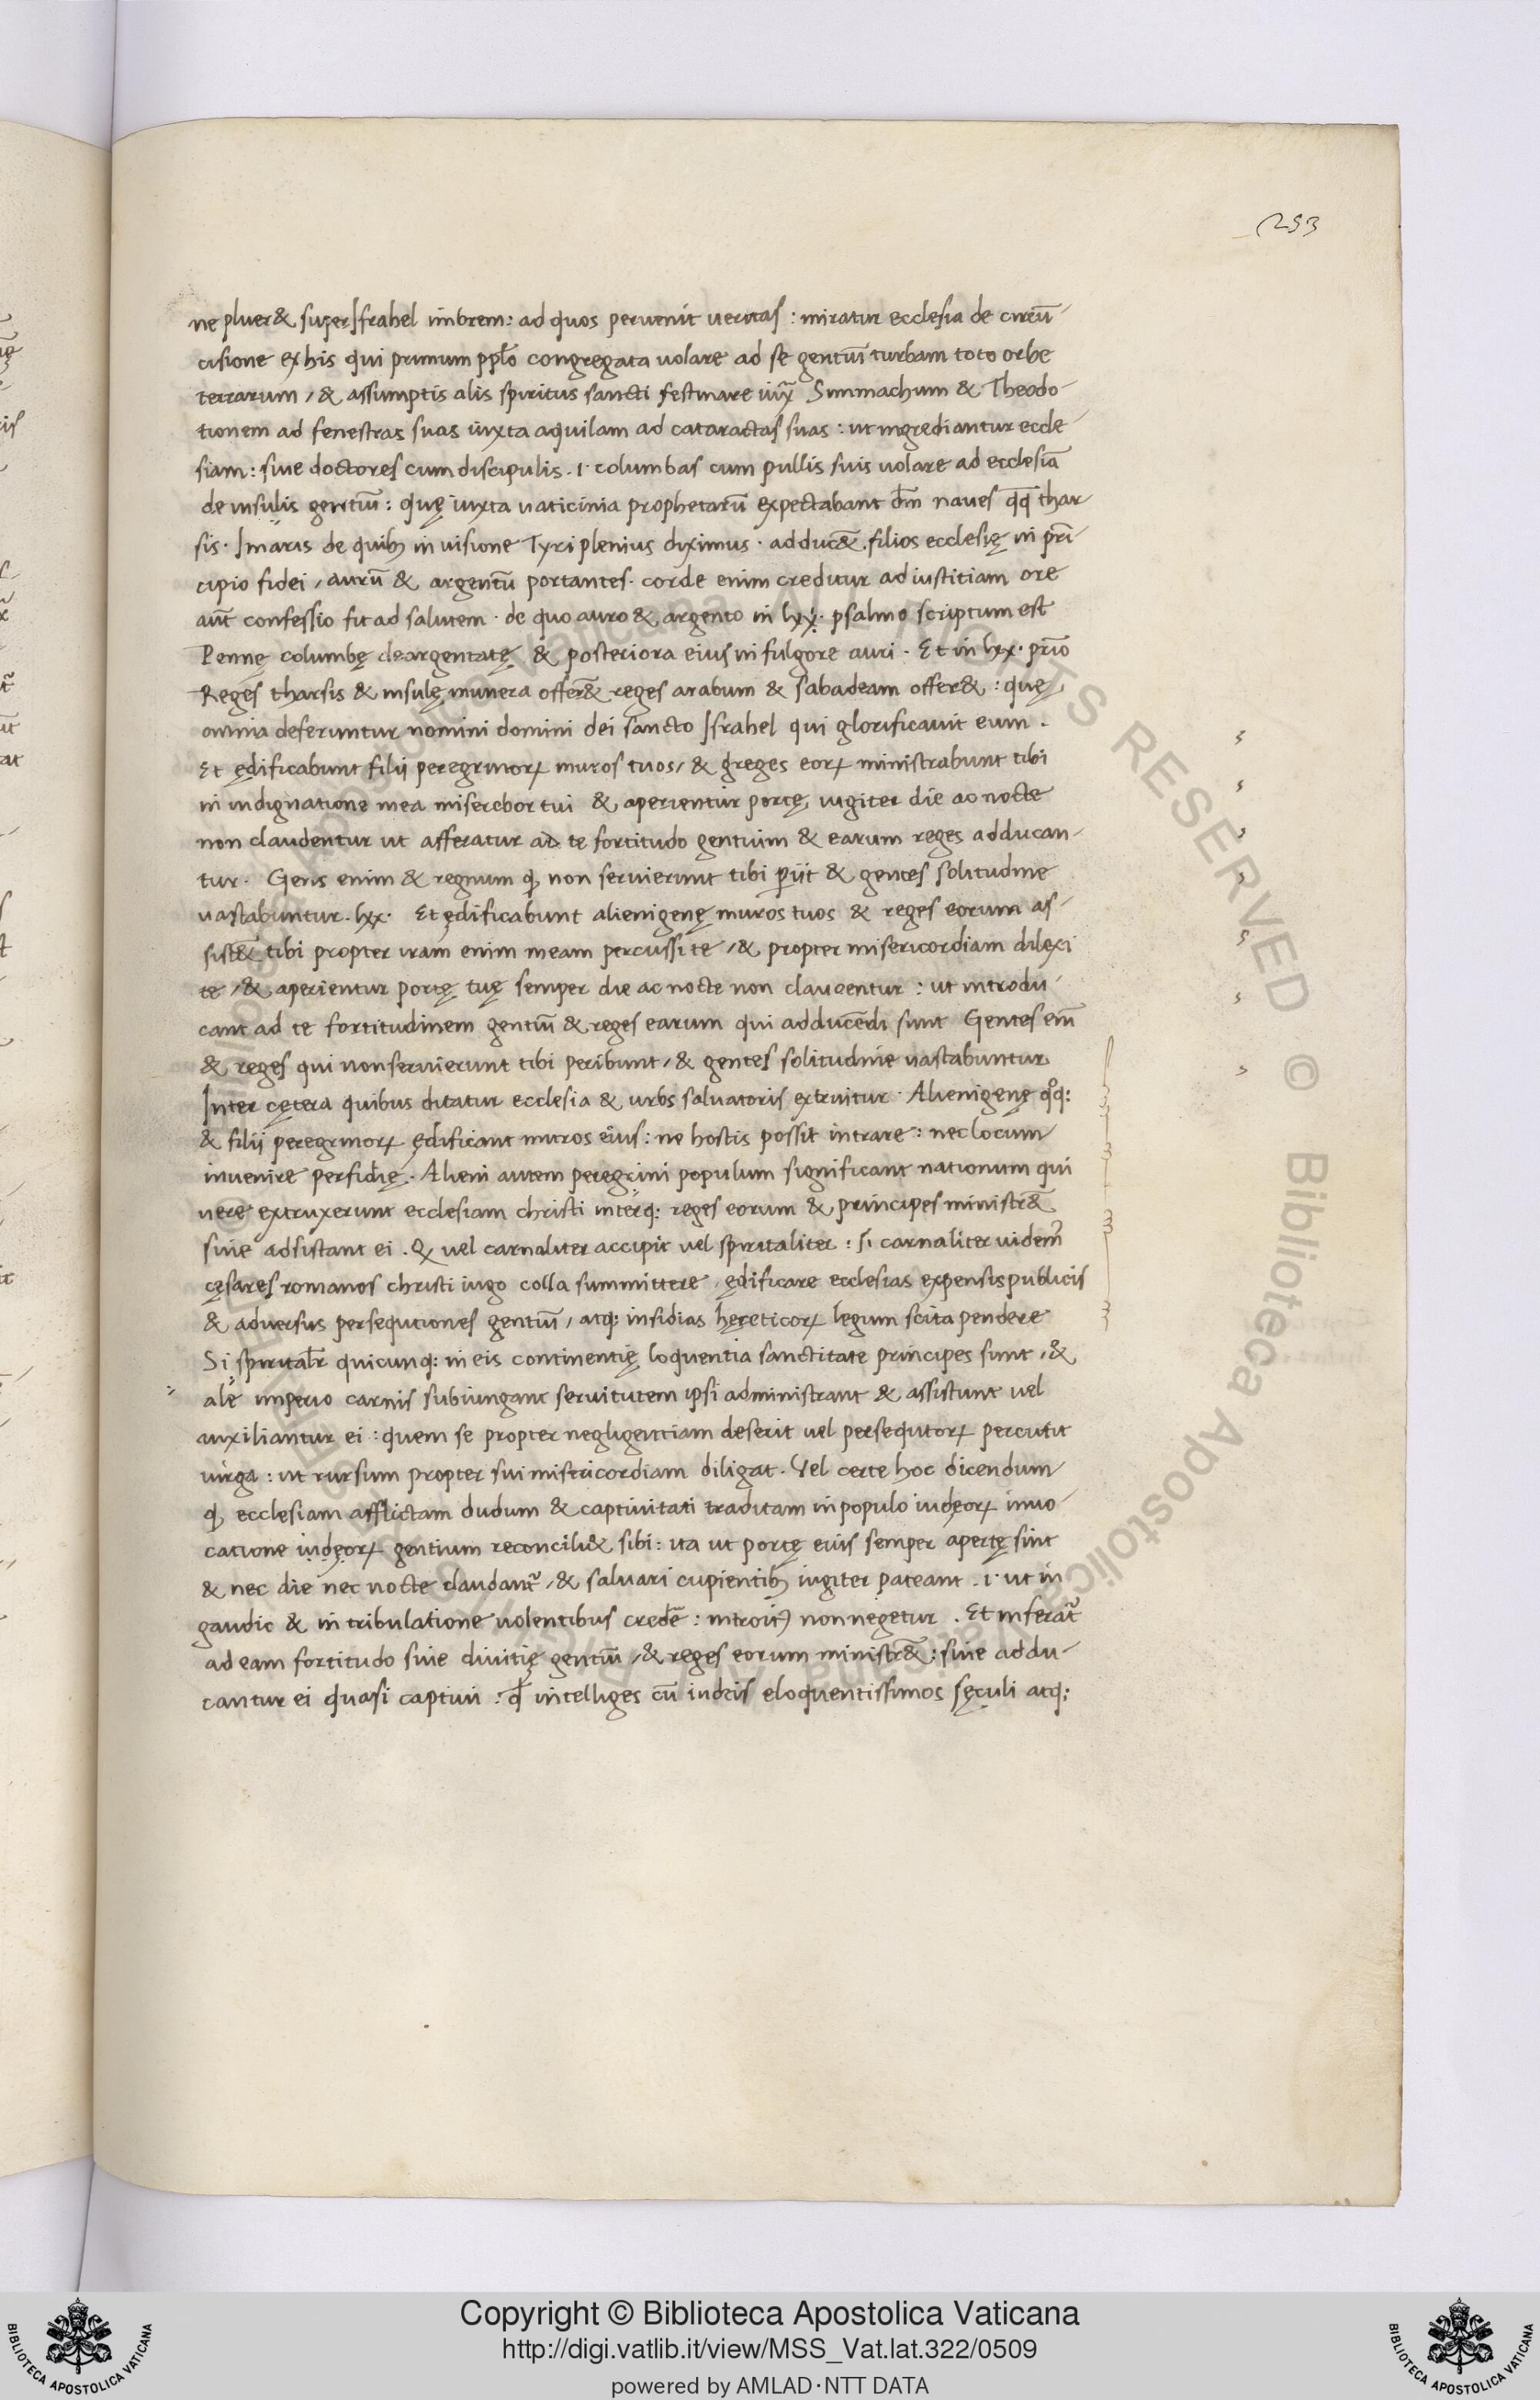 253
ne pluer& super Israhel imbrem: ad quos peruenit ueritas: miratur ecclesia de circū-
cisione ex his qui primum ppl̄o congregata uolare ad se gentiū turbam toto orbe
terrarum, & assumptis alis spiritus sancti festinare iux̄ Simmachum & Theodo-
tionem ad fenestras suas iuxta aquilam ad cataractas suas: ut ingrediantur eccle-
siam: siue doctores cum discipulis .i. columbas cum pullis suis uolare ad ecclesiā
de insulis gentiū: quę iuxta uaticinia prophetarū expectabant dn̄m naues qq̄ thar-
sis. I maris de quib; in uisione Tyri plenius diximus. adducē&. filios ecclesię in prī-
cipio fidei, aurū & argentū portantes. corde enim creditur ad iustitiam ore
aūt confessio fit ad salutem. de quo auro & argento in lxx. psalmo scriptum est
Pennę columbę deargentatę & posteriora eius in fulgore auri. Et in lxx. prīo
Reges tharsis & insulę munera offer& reges arabum & sabadeam offer&: quę
omnia deferuntur nomini domini dei sancto Israhel qui glorificauit eum.
Et ędificabunt filij peregrinorꝝ muros tuos, & greges eorꝝ ministrabunt tibi
in indignatione mea miserebor tui & aperientur portę iugiter die ac nocte
non claudentur ut afferatur ad te fortitudo gentium & earum reges adducan-
tur. Gens enim & regnum q̨ non seruierunt tibi ꝑiit & gentes solitudine
uastabuntur. lxx. Et ędificabunt alienigenę muros tuos & reges eorum as-
sist& tibi propter iram enim meam percussi te, & propter misericordiam dilexi
te, & aperientur portę tuę semper die ac nocte non claucentur: ut introdu-
cant ad te fortitudinem gentiū & reges earum qui adducēdi sunt Gentes em̄
& reges qui non seruierunt tibi peribunt, & gentes solitudine uastabuntur
Inter cętera quibus ditatur ecclesia & urbs saluatoris extruitur. Alienigenę qͦq:
& filij peregrinorꝝ ędificant muros eius: ne hostis possit intrare: nec locum
inuenire perfidię. Alieni autem peregrini populum significant nationum qui
uere extruxerunt ecclesiam christi interq: reges eorum & principes ministr&
siue adsistant ei. Q uel carnaliter accipit uel spiritaliter: si carnaliter uidem̄
cęsares romanos christi iugo colla summittere, ędificare ecclesias expensis publicis
& aduersus persequtiones gentiū, atq: insidias hęreticorꝝ legum scita pendere
Si spiritalr̄ quicunq: in eis continentię loquentia sanctitate principes sunt, &
ale imperio carnis subiungant seruitutem ipsi administrant & assistunt uel
auxiliantur ei: quem se propter negligentiam deserit uel persequtorꝝ percutit
uirga: ut rursum propter sui misericordiam diligat. Vel certe hoc dicendum
q̨ ecclesiam afflictam dudum & captiuitati traditam in populo iudęorꝝ inuo-
catione iudęorꝝ gentium reconcili& sibi: ita ut portę eius semper apertę sint
& nec die nec nocte claudant̄, & saluari cupientib; iugiter pateant .i. ut in
gaudio & in tribulatione uolentibus credē: introit; non negetur. Et inferat̄
ad eam fortitudo siue diuitię gentiū, & reges eorum ministr&: siue addu-
cantur ei quasi captiui: q̄ intelliges cū uideis eloquentissimos sęculi atq:
© Biblioteca Apostolica Vaticana ALL RIGHTS RESERVED
Copyright © Biblioteca Apostolica Vaticana
http://digi.vatlib.it/view/MSS_Vat.lat.322/0509
powered by AMLAD·NTT DATA
BIBLIOTECA APOSTOLICA VATICANA
BIBLIOTECA APOSTOLICA VATICANA